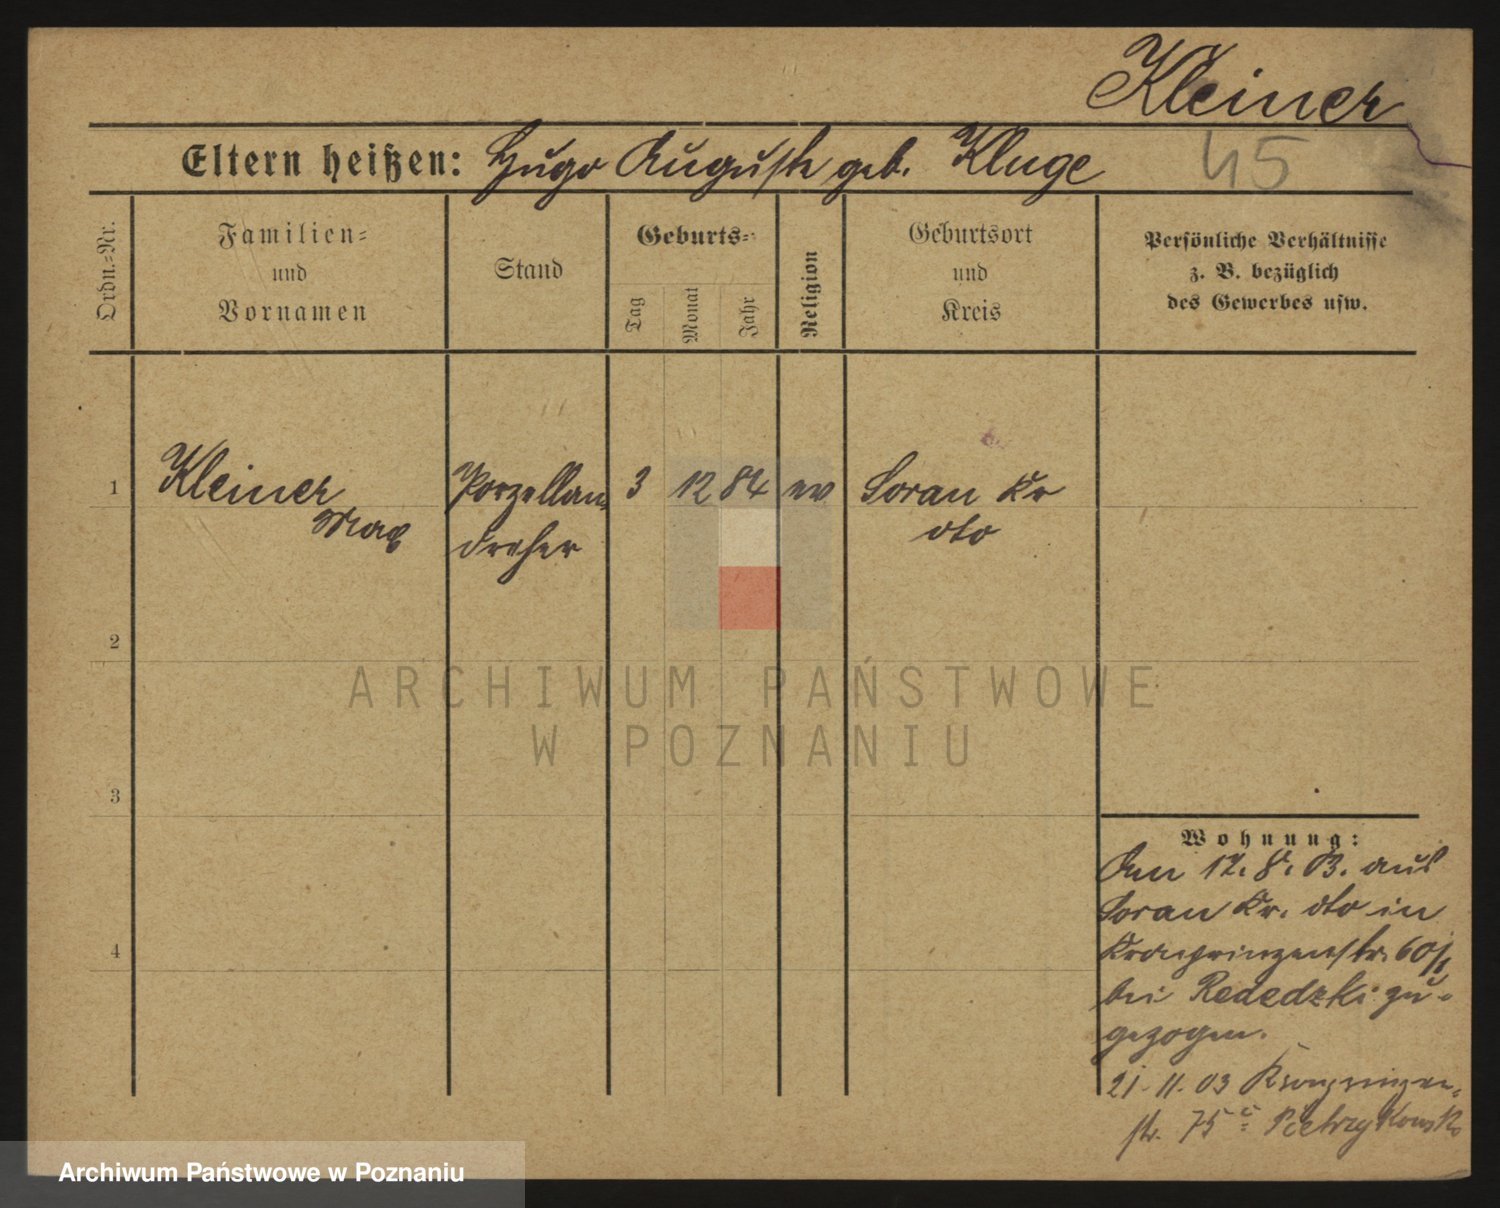 Kleiner
Eltern heißen: Hugo Auguste geb. Kluge
45
Ordn.=Nr.
Familien=
und
Vornamen
Stand
Geburts=
Tag
Monat
Jahr
Religion
Geburtsort
und
Kreis
Persönliche Verhältnisse
z. B. bezüglich
des Gewerbes usw.
1
Kleiner
Max
Porzellan
dreher
3 12 84 ev
Soran Kr
dto
2
3
4
Wohnung:
Den 12. 8. 03. aus
Soran Kr. dto in
Kronprinzenstr. 60/I
bei zu-
gezogen.
21. 11. 03 Kronprinzen-
str. 75
ARCHIWUM PAŃSTWOWE
W POZNANIU
Archiwum Państwowe w Poznaniu